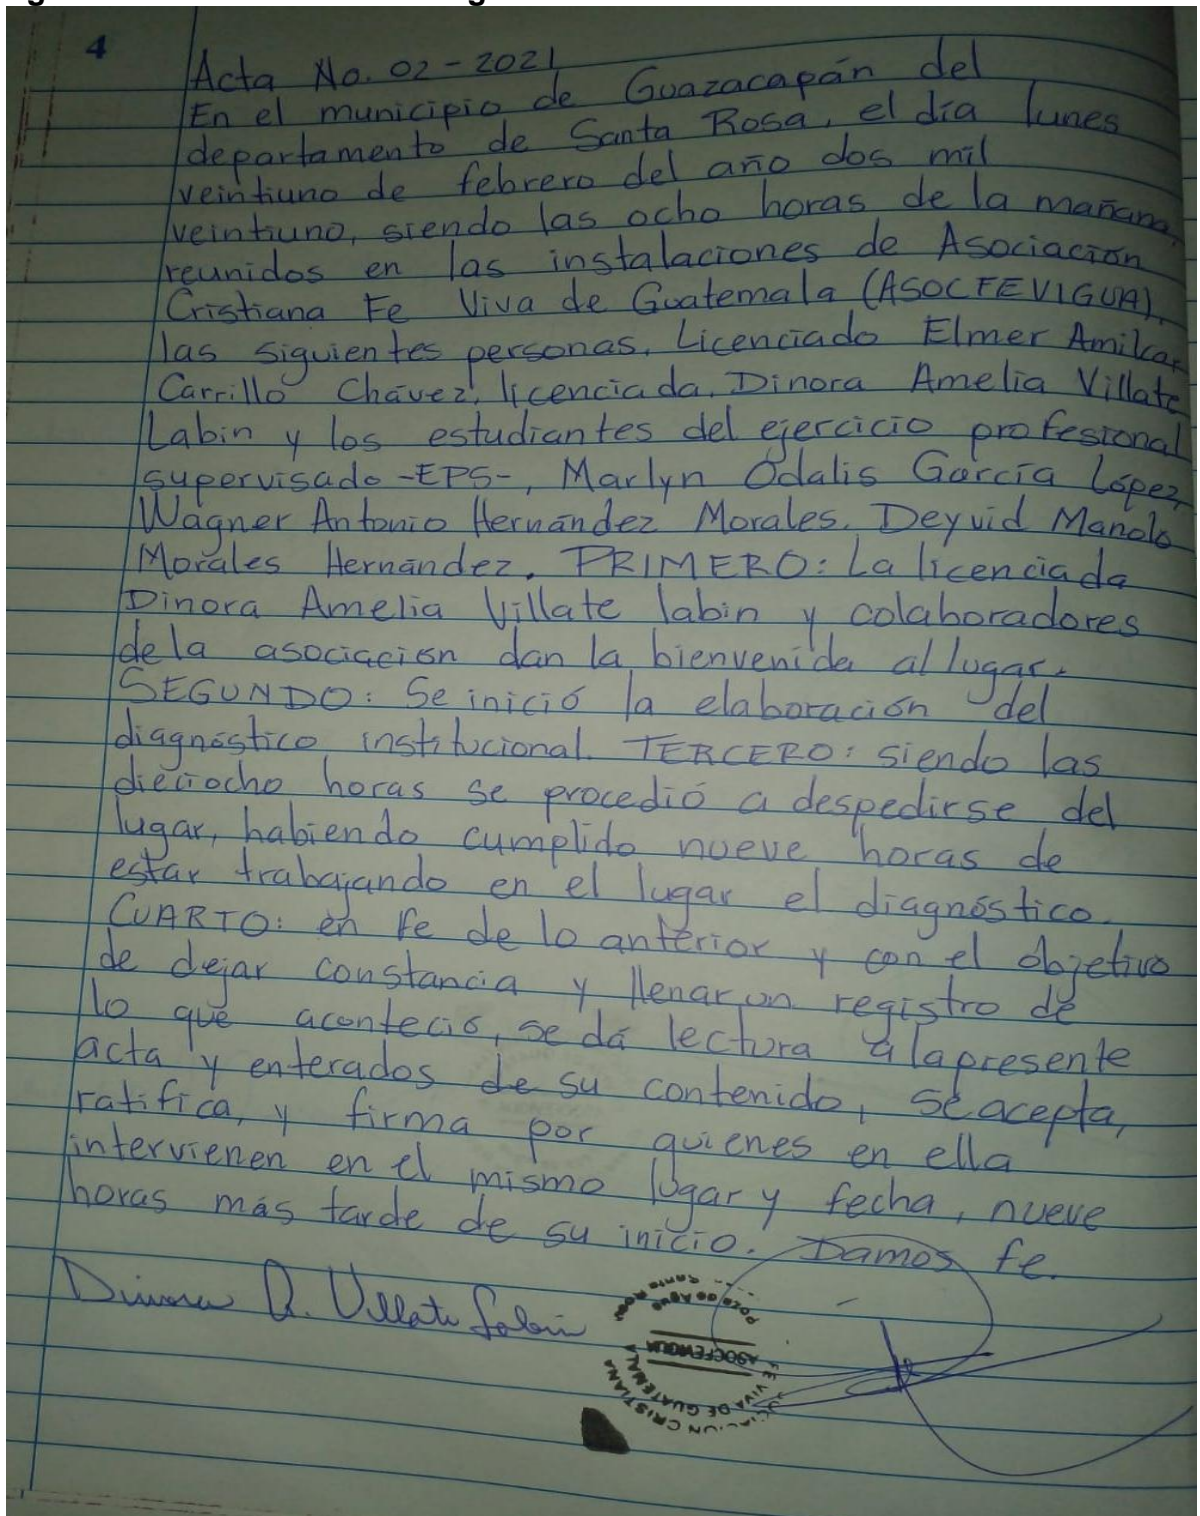 4
Acta No. 02-2021
En el municipio de Guazacapán del
departamento de Santa Rosa, el día lunes
veintiuno de febrero del año dos mil
veintiuno, siendo las ocho horas de la mañana,
reunidos en las instalaciones de Asociación
Cristiana Fe Viva de Guatemala (ASOCFEVIGUA),
las siguientes personas. Licenciado Elmer Amilcar
Carrillo Chávez, licenciada. Dinora Amelia Villate
Labin y los estudiantes del ejercicio profesional
supervisado -EPS-, Marlyn Odalis García López,
Wagner Antonio Hernández Morales. Deyvid Manolo
Morales Hernández. PRIMERO: La licenciada
Dinora Amelia Villate labin y colaboradores
de la asociación dan la bienvenida al lugar.
SEGUNDO: Se inició la elaboración del
diagnóstico institucional. TERCERO: siendo las
dieciocho horas se procedió a despedirse del
lugar, habiendo cumplido nueve horas de
estar trabajando en el lugar el diagnóstico.
CUARTO: en Fe de lo anterior y con el objetivo
de dejar constancia y llenar un registro de
lo que aconteció, se dá lectura a la presente
acta y enterados de su contenido, se acepta,
ratifica, y firma por quienes en ella
intervienen en el mismo lugar y fecha, nueve
horas más tarde de su inicio. Damos fe.
Dinora A. Villate Labin
ASOCFEVIGUA
CRISTIANA
FE VIVA DE GUATEMALA